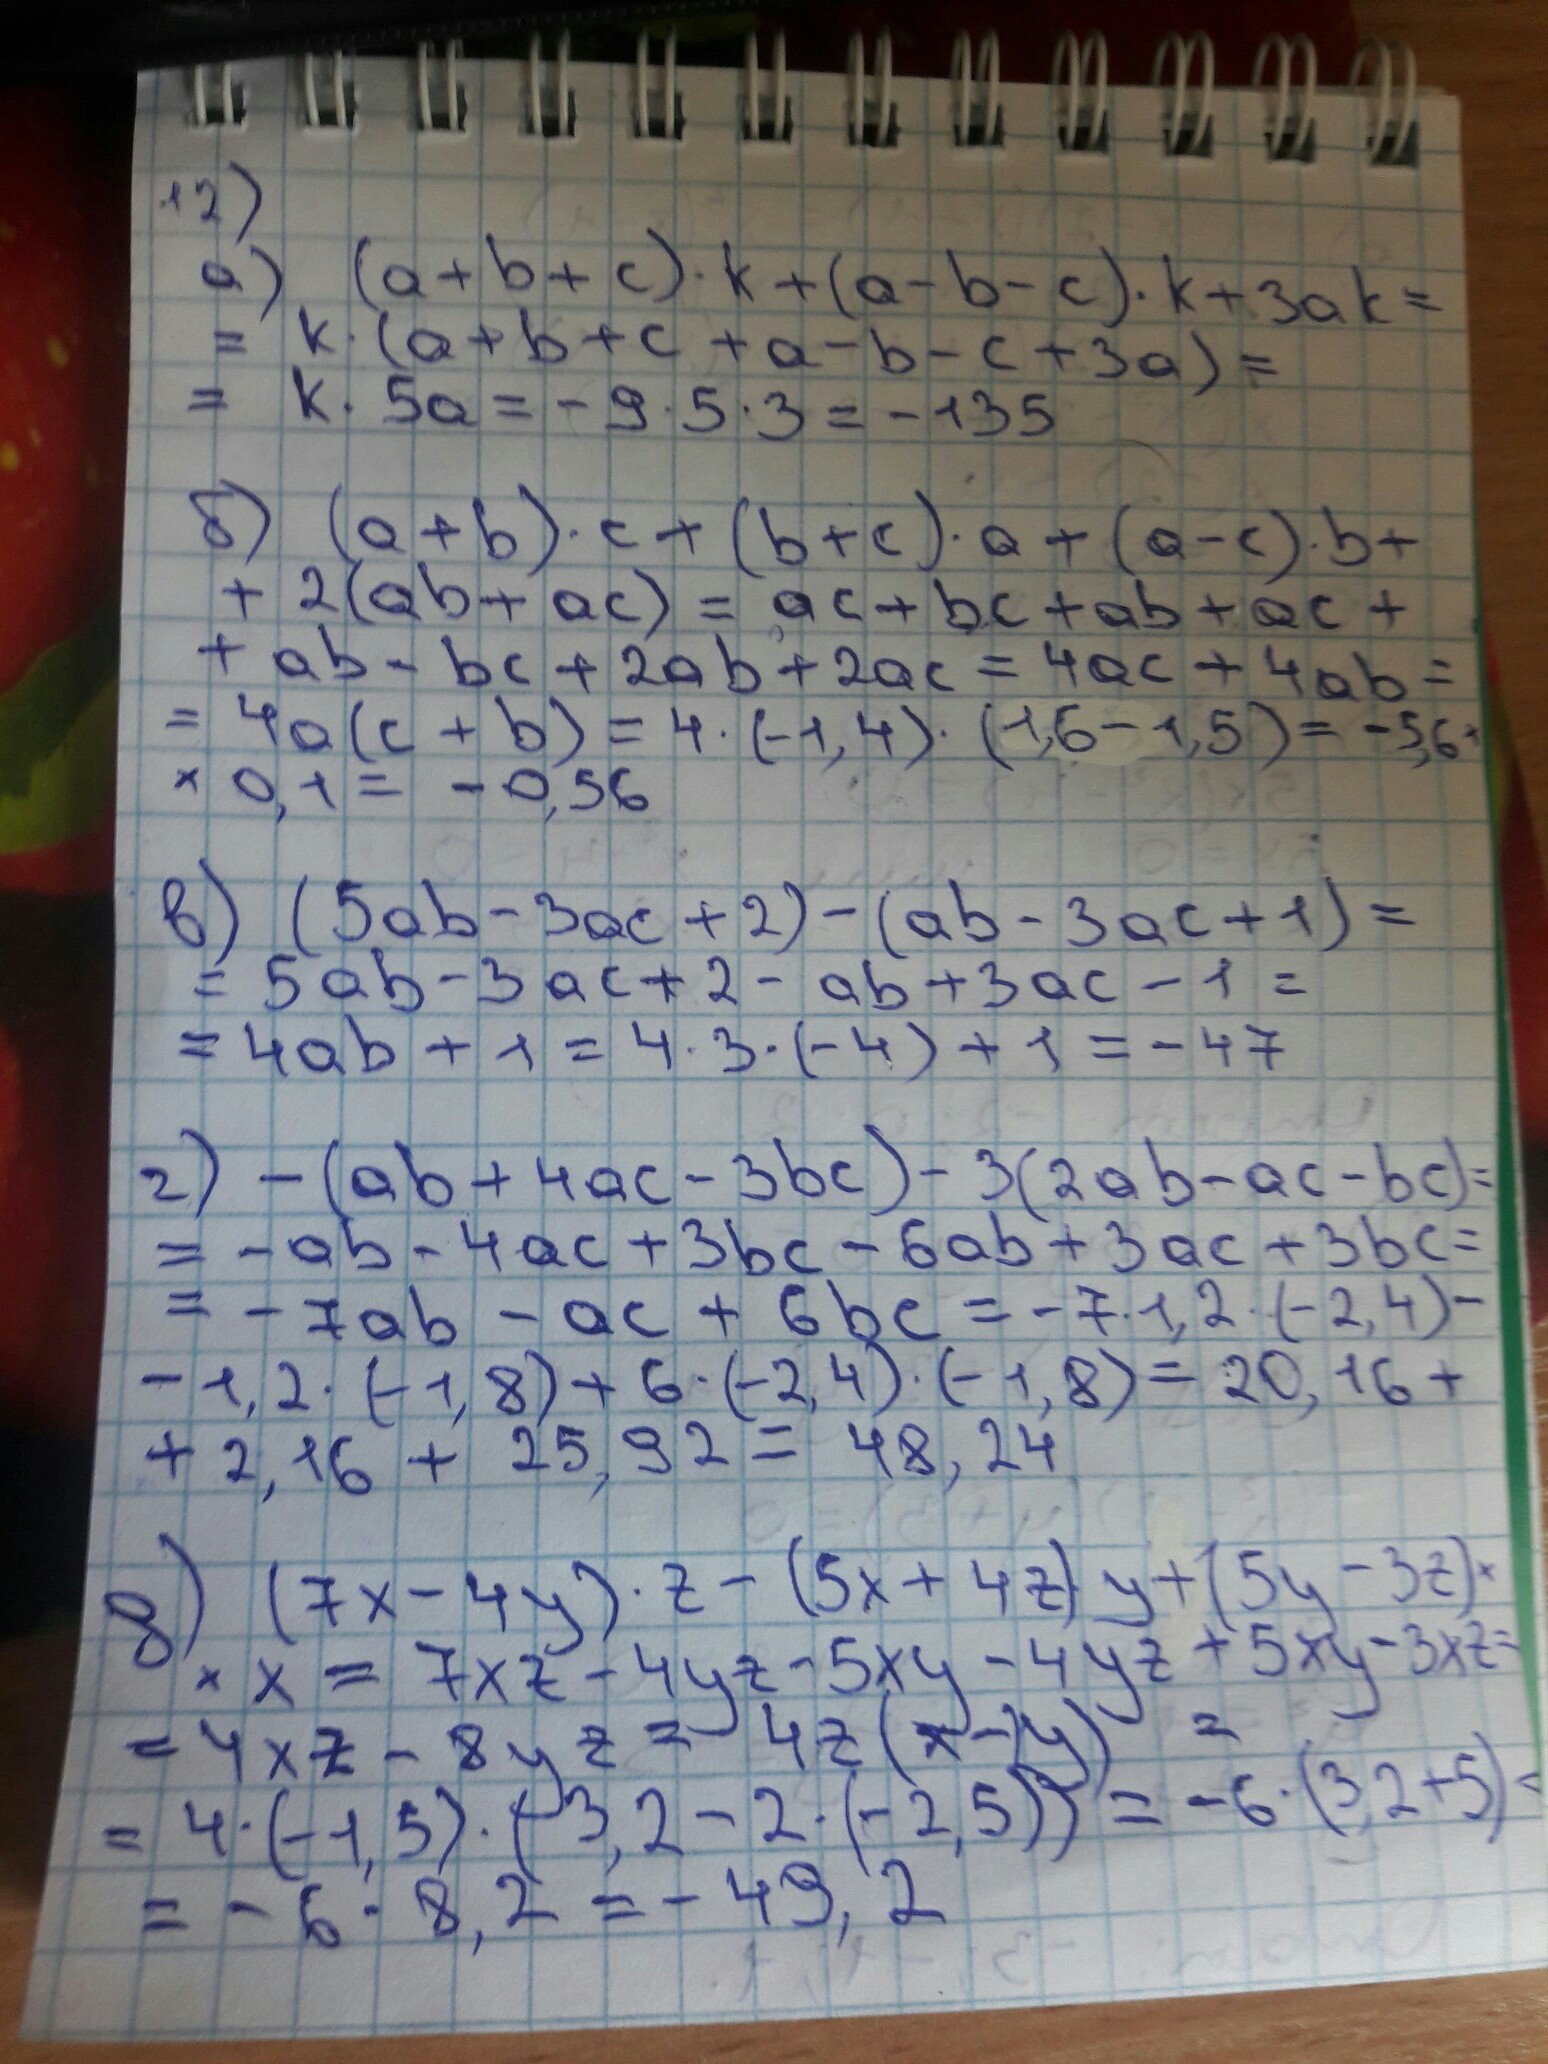 12)
а) (a+b+c)·k+(a-b-c)·k+3ak=
= k·(a+b+c+a-b-c+3a)=
= k·5a=-9·5·3=-135
б) (a+b)·c+(b+c)·a+(a-c)·b+
+2(ab+ac)=ac+bc+ab+ac+
+ab-bc+2ab+2ac=4ac+4ab=
=4a(c+b)=4·(-1,4)·(1,6-1,5)=-5,6×
×0,1=-0,56
в) (5ab-3ac+2)-(ab-3ac+1)=
=5ab-3ac+2-ab+3ac-1=
=4ab+1=4·3·(-4)+1=-47
г) -(ab+4ac-3bc)-3(2ab-ac-bc)=
=-ab-4ac+3bc-6ab+3ac+3bc=
=-7ab-ac+6bc=-7·1,2·(-2,4)-
-1,2·(-1,8)+6·(-2,4)·(-1,8)=20,16+
+2,16+25,92=48,24
д) (7x-4y)·z-(5x+4z)y+(5y-3z)×
×x=7xz-4yz-5xy-4yz+5xy-3xz=
=4xz-8yz=4z(x-y)=
=4·(-1,5)·(3,2-2·(-2,5))=-6·(3,2+5)=
=-6·8,2=-49,2